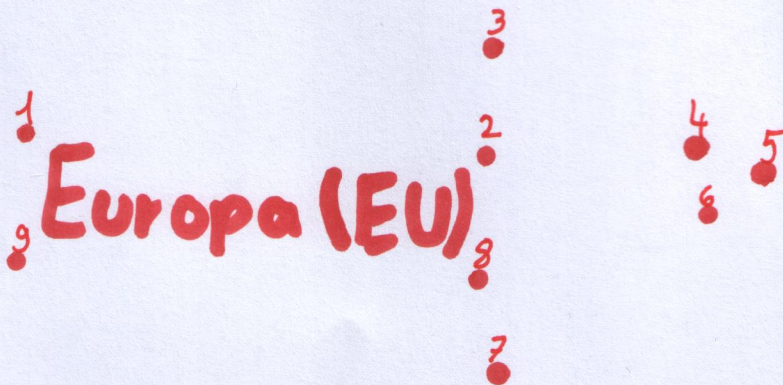 3
1
2
4
5
Europa (EU)
6
9
8
7